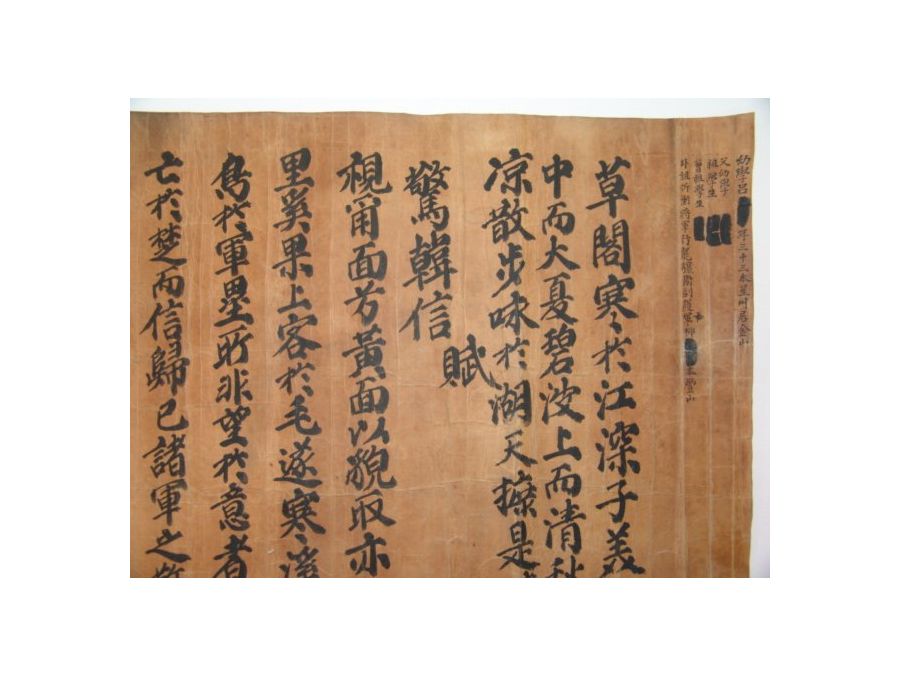 幼學呂 年三十三本星州居金山
父幼學
祖學生
曾祖學生
外祖折衝將軍行龍驤衛副護軍 本豊山
草閣寒於江深子美
中而大夏碧波上而清秋
凉散步咏於湖天據是
賦
驚韓信
視甬面方黃面以貌取亦
里奚果上客於毛遂寒溪
烏於軍壘所非望於意者
亡於楚而信歸已諸軍之